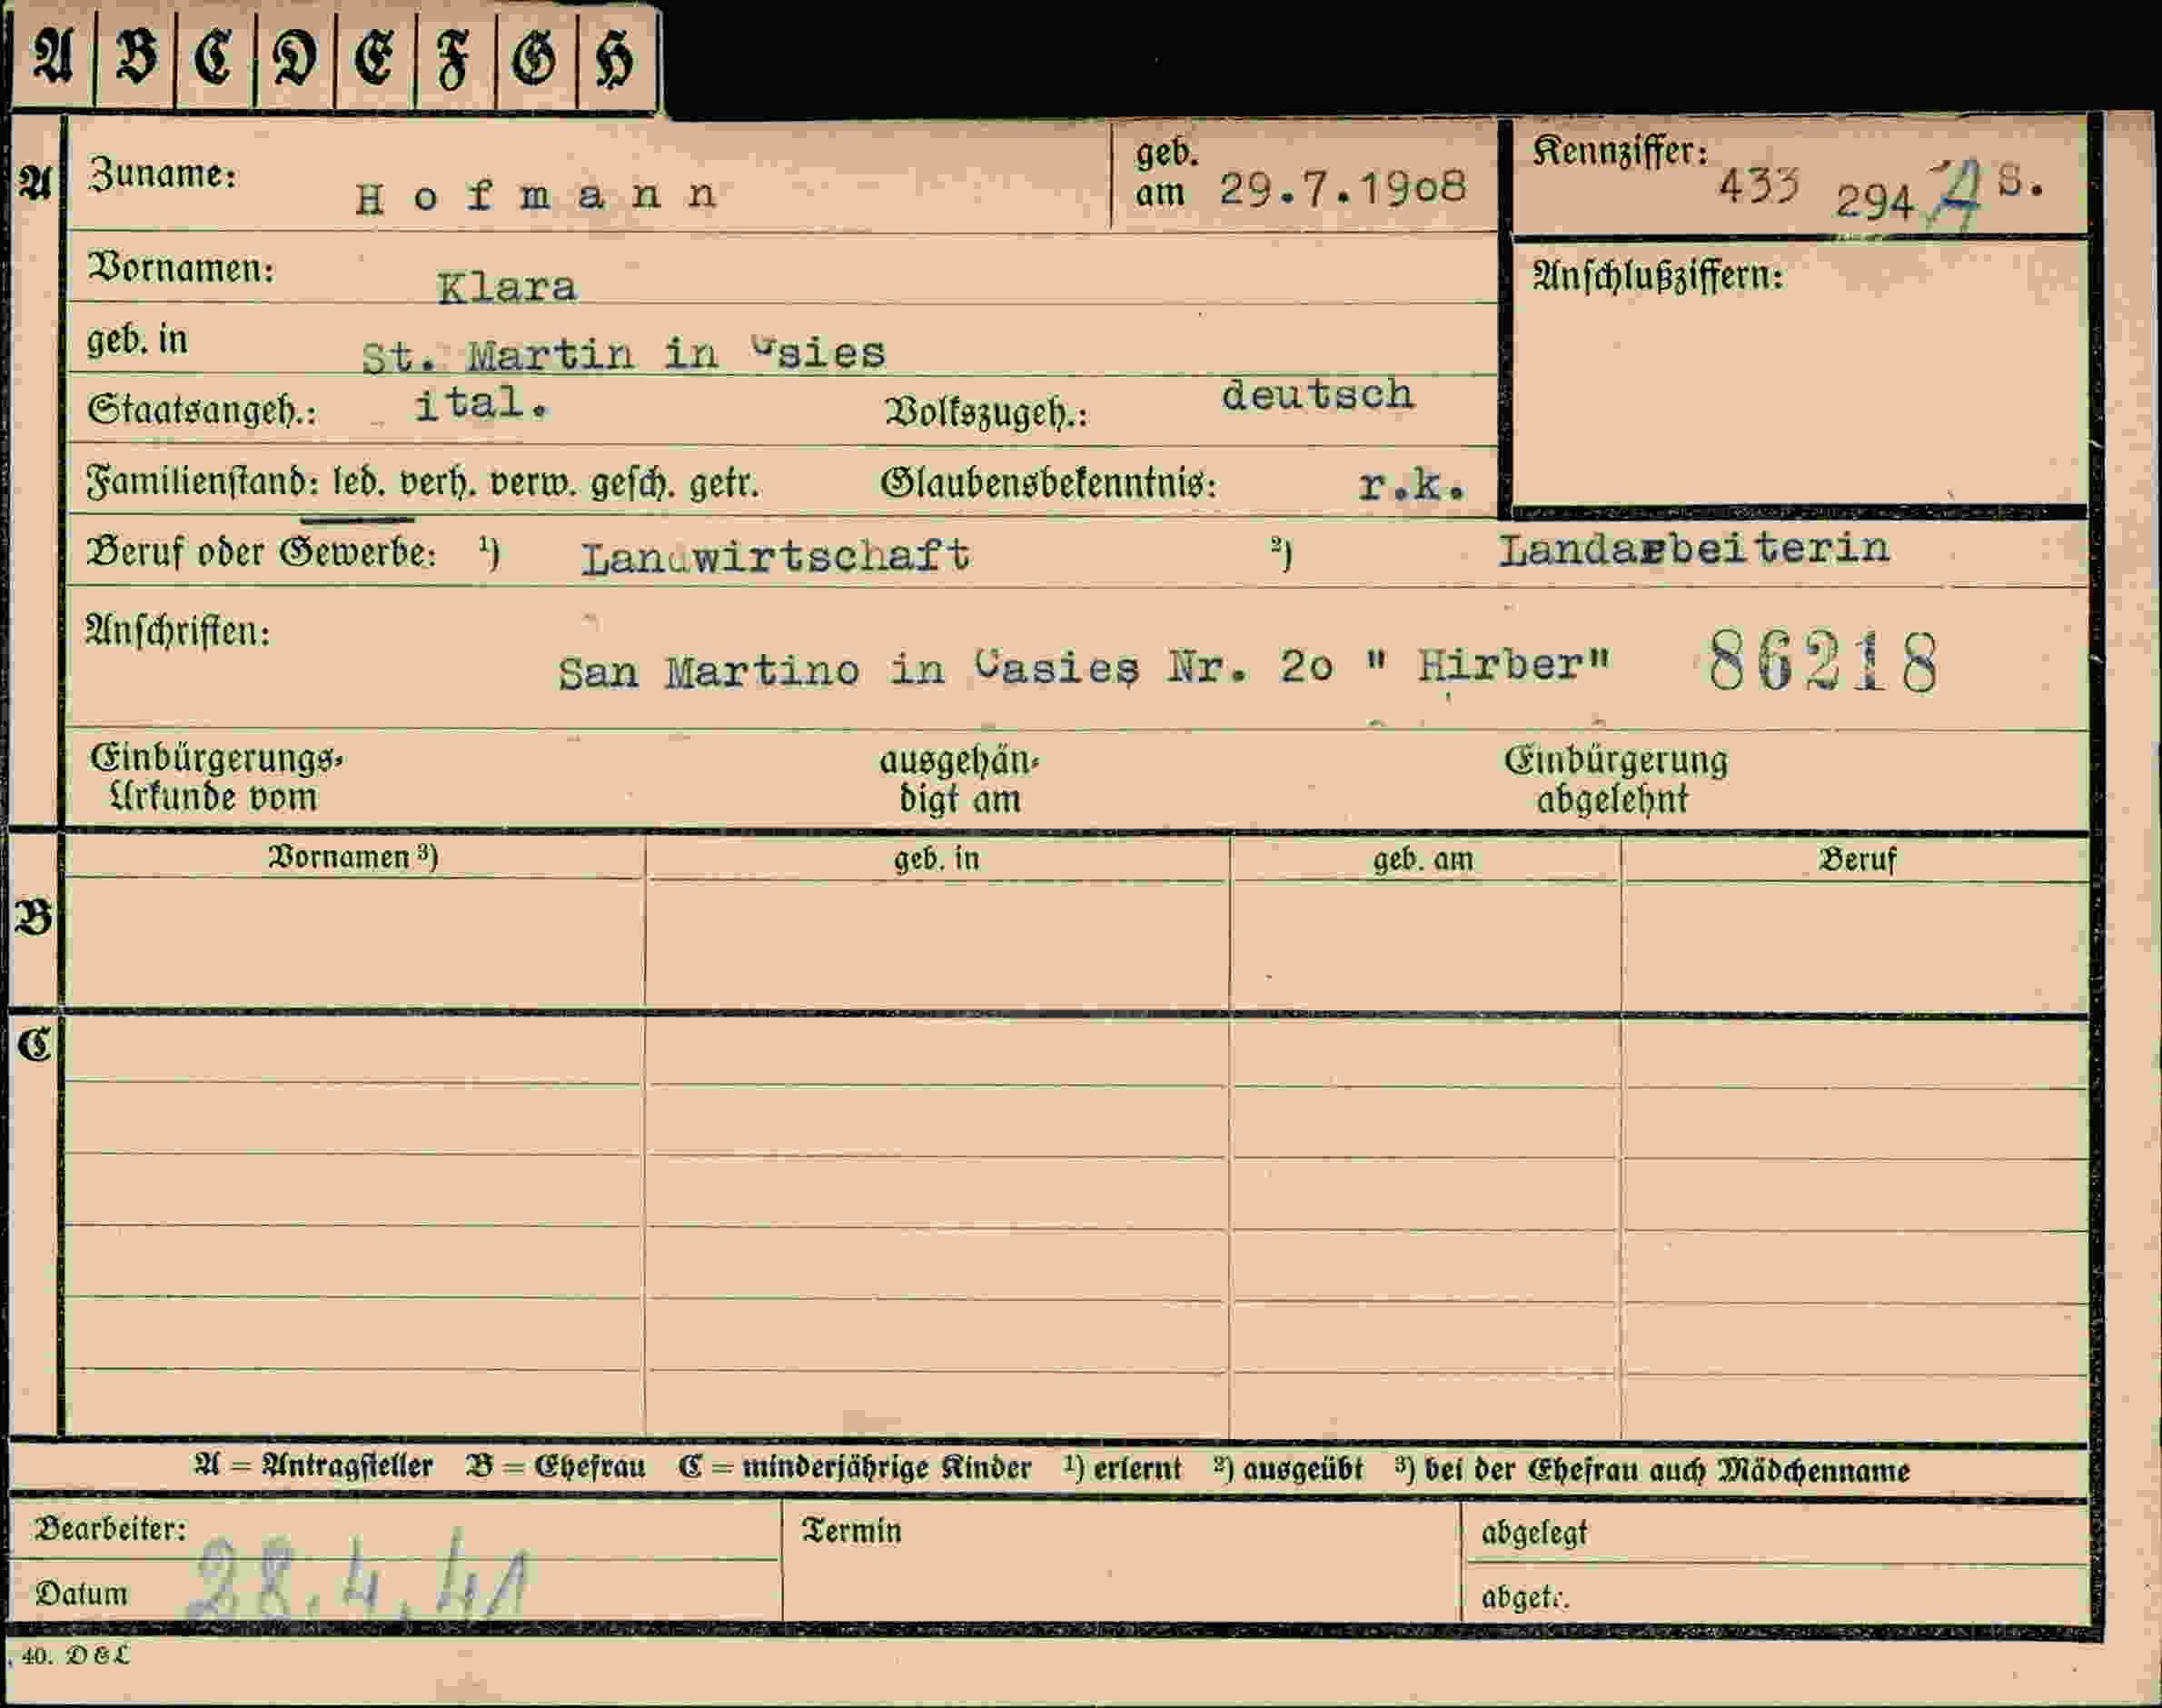 A B C D E F G H
A Zuname: Hofmann geb. am 29.7.1908 Kennziffer: 433 294 A S.
Vornamen: Klara Anschlußziffern:
geb. in St. Martin in Gsies
Staatsangeh.: ital. Volkszugeh.: deutsch
Familienstand: led. verh. verw. gesch. getr. Glaubensbekenntnis: r.k.
Beruf oder Gewerbe: ¹) Landwirtschaft ²) Landarbeiterin
Anschriften:
San Martino in Casies Nr. 20 " Hirber" 86218
Einbürgerungs- ausgehän- Einbürgerung
Urkunde vom digt am abgelehnt
Vornamen ³) geb. in geb. am Beruf
B
C
A = Antragsteller B = Ehefrau C = minderjährige Kinder ¹) erlernt ²) ausgeübt ³) bei der Ehefrau auch Mädchenname
Bearbeiter: Termin abgelegt
Datum 28.4.41 abgetr.
40. D & L